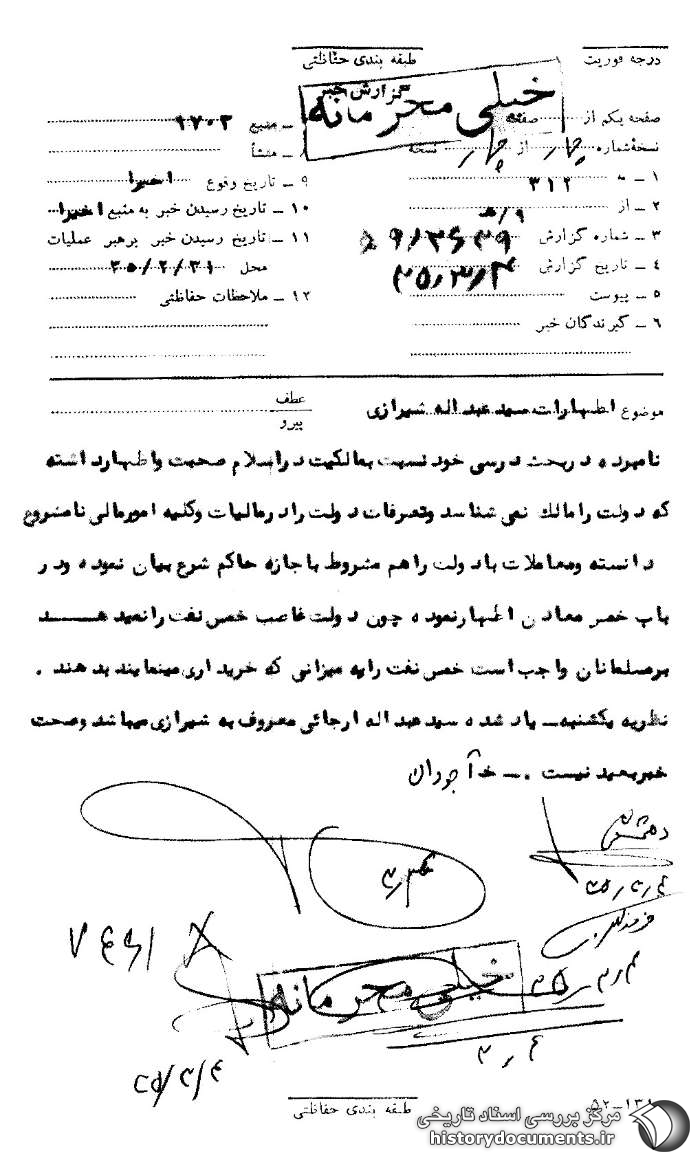 درجه فوریت
طبقه بندی حفاظتی
گزارش خبر
خیلی محرمانه
صفحه یکم از صفحه
نسخهٔ شماره چهار از چهار نسخه
۱ ـ به ۳۱۲
۲ ـ از ۹/هـ
۳ ـ شماره گزارش
۴ ـ تاریخ گزارش ۳۵/۳/۴
۵ ـ پیوست
۶ ـ گیرندگان خبر
۷ ـ منبع ۹۷۰۲
۸ ـ منشأ
۹ ـ تاریخ وقوع اخیرا
۱۰ ـ تاریخ رسیدن خبر به منبع اخیرا
۱۱ ـ تاریخ رسیدن خبر برهبر عملیات
محل ۳۵/۲/۳۱
۱۲ ـ ملاحظات حفاظتی
موضوع اظهارات سید عبداله شیرازی
عطف
پیرو
نامبرده در بحث درسی خود نسبت بمالکیت در اسلام صحبت و اظهار داشته
که دولت را مالك نمی شناسد و تصرفات دولت را در مالیات و کلیه امور مالی نامشروع
دانسته و معاملات با دولت را هم مشروط باجازه حاکم شرع بیان نموده و در
باب خمس معادن اظهار نموده چون دولت غاصب خمس نفت را نمیدهد
بر مسلمانان واجب است خمس نفت را به میزانی که خریداری مینمایند بدهند .
نظریه یکشنبه ـ یاد شده سید عبداله ارجائی معروف به شیرازی میباشد و صحت
خبر بعید نیست . ـ خ آجودان
۳۵/۳/۴
خیلی محرمانه
۳/۴
۳۵/۳/۴
طبقه بندی حفاظتی
مرکز بررسی اسناد تاریخی
historydocuments.ir